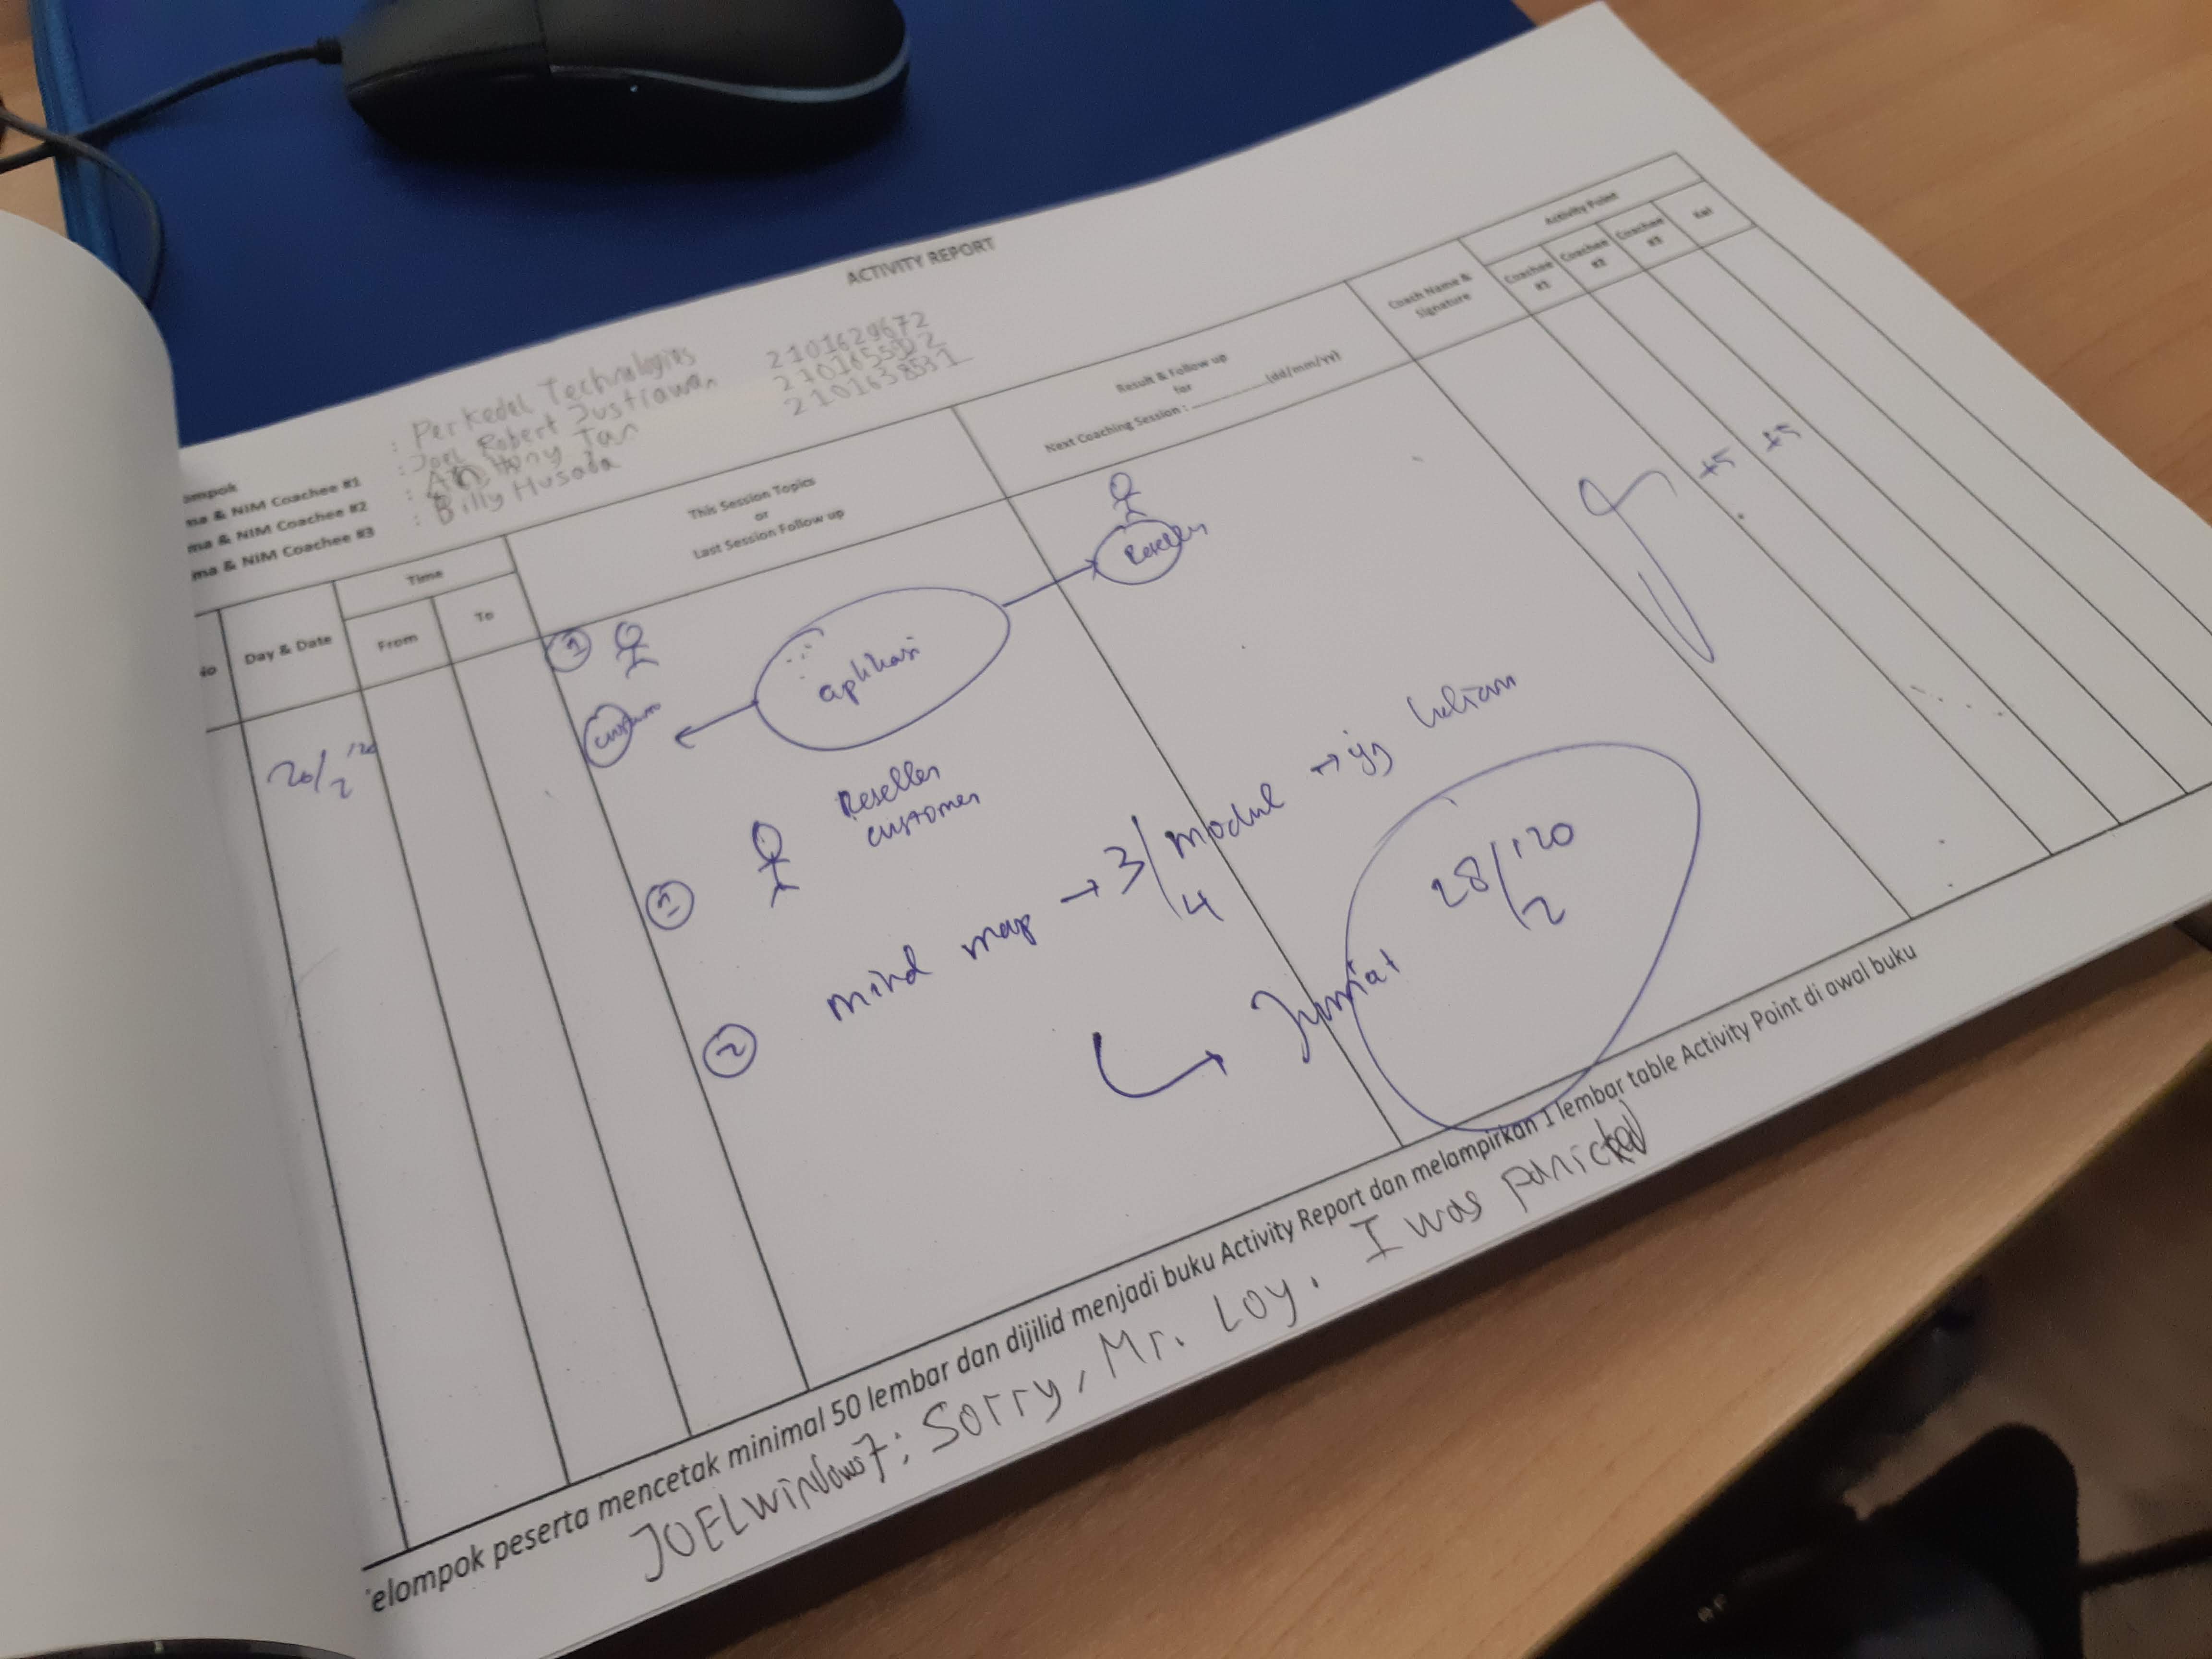 ACTIVITY REPORT
ompok : Perkedel Technologies
ma & NIM Coachee #1 : Joel Robert Justiawan 2101629672
ma & NIM Coachee #2 : Anthony Tan
ma & NIM Coachee #3 : Billy Husada 2101638531
Day & Date
Time
From
To
This Session Topics
or
Last Session Follow up
Result & Follow up
for
Next Coaching Session : (dd/mm/yy)
Coach Name &
Signature
Activity Point
Coachee
#1
Coachee
#2
Coachee
#3
Ket
20/2 '20
1
aplikasi
Reseller
+5 +5
Reseller
customer
1
2 mind map → 3/4 modul →
Jumat 28/2 '20
elompok peserta mencetak minimal 50 lembar dan dijilid menjadi buku Activity Report dan melampirkan 1 lembar table Activity Point di awal buku
JOELwindows7: Sorry, Mr. Loy. I was panicked